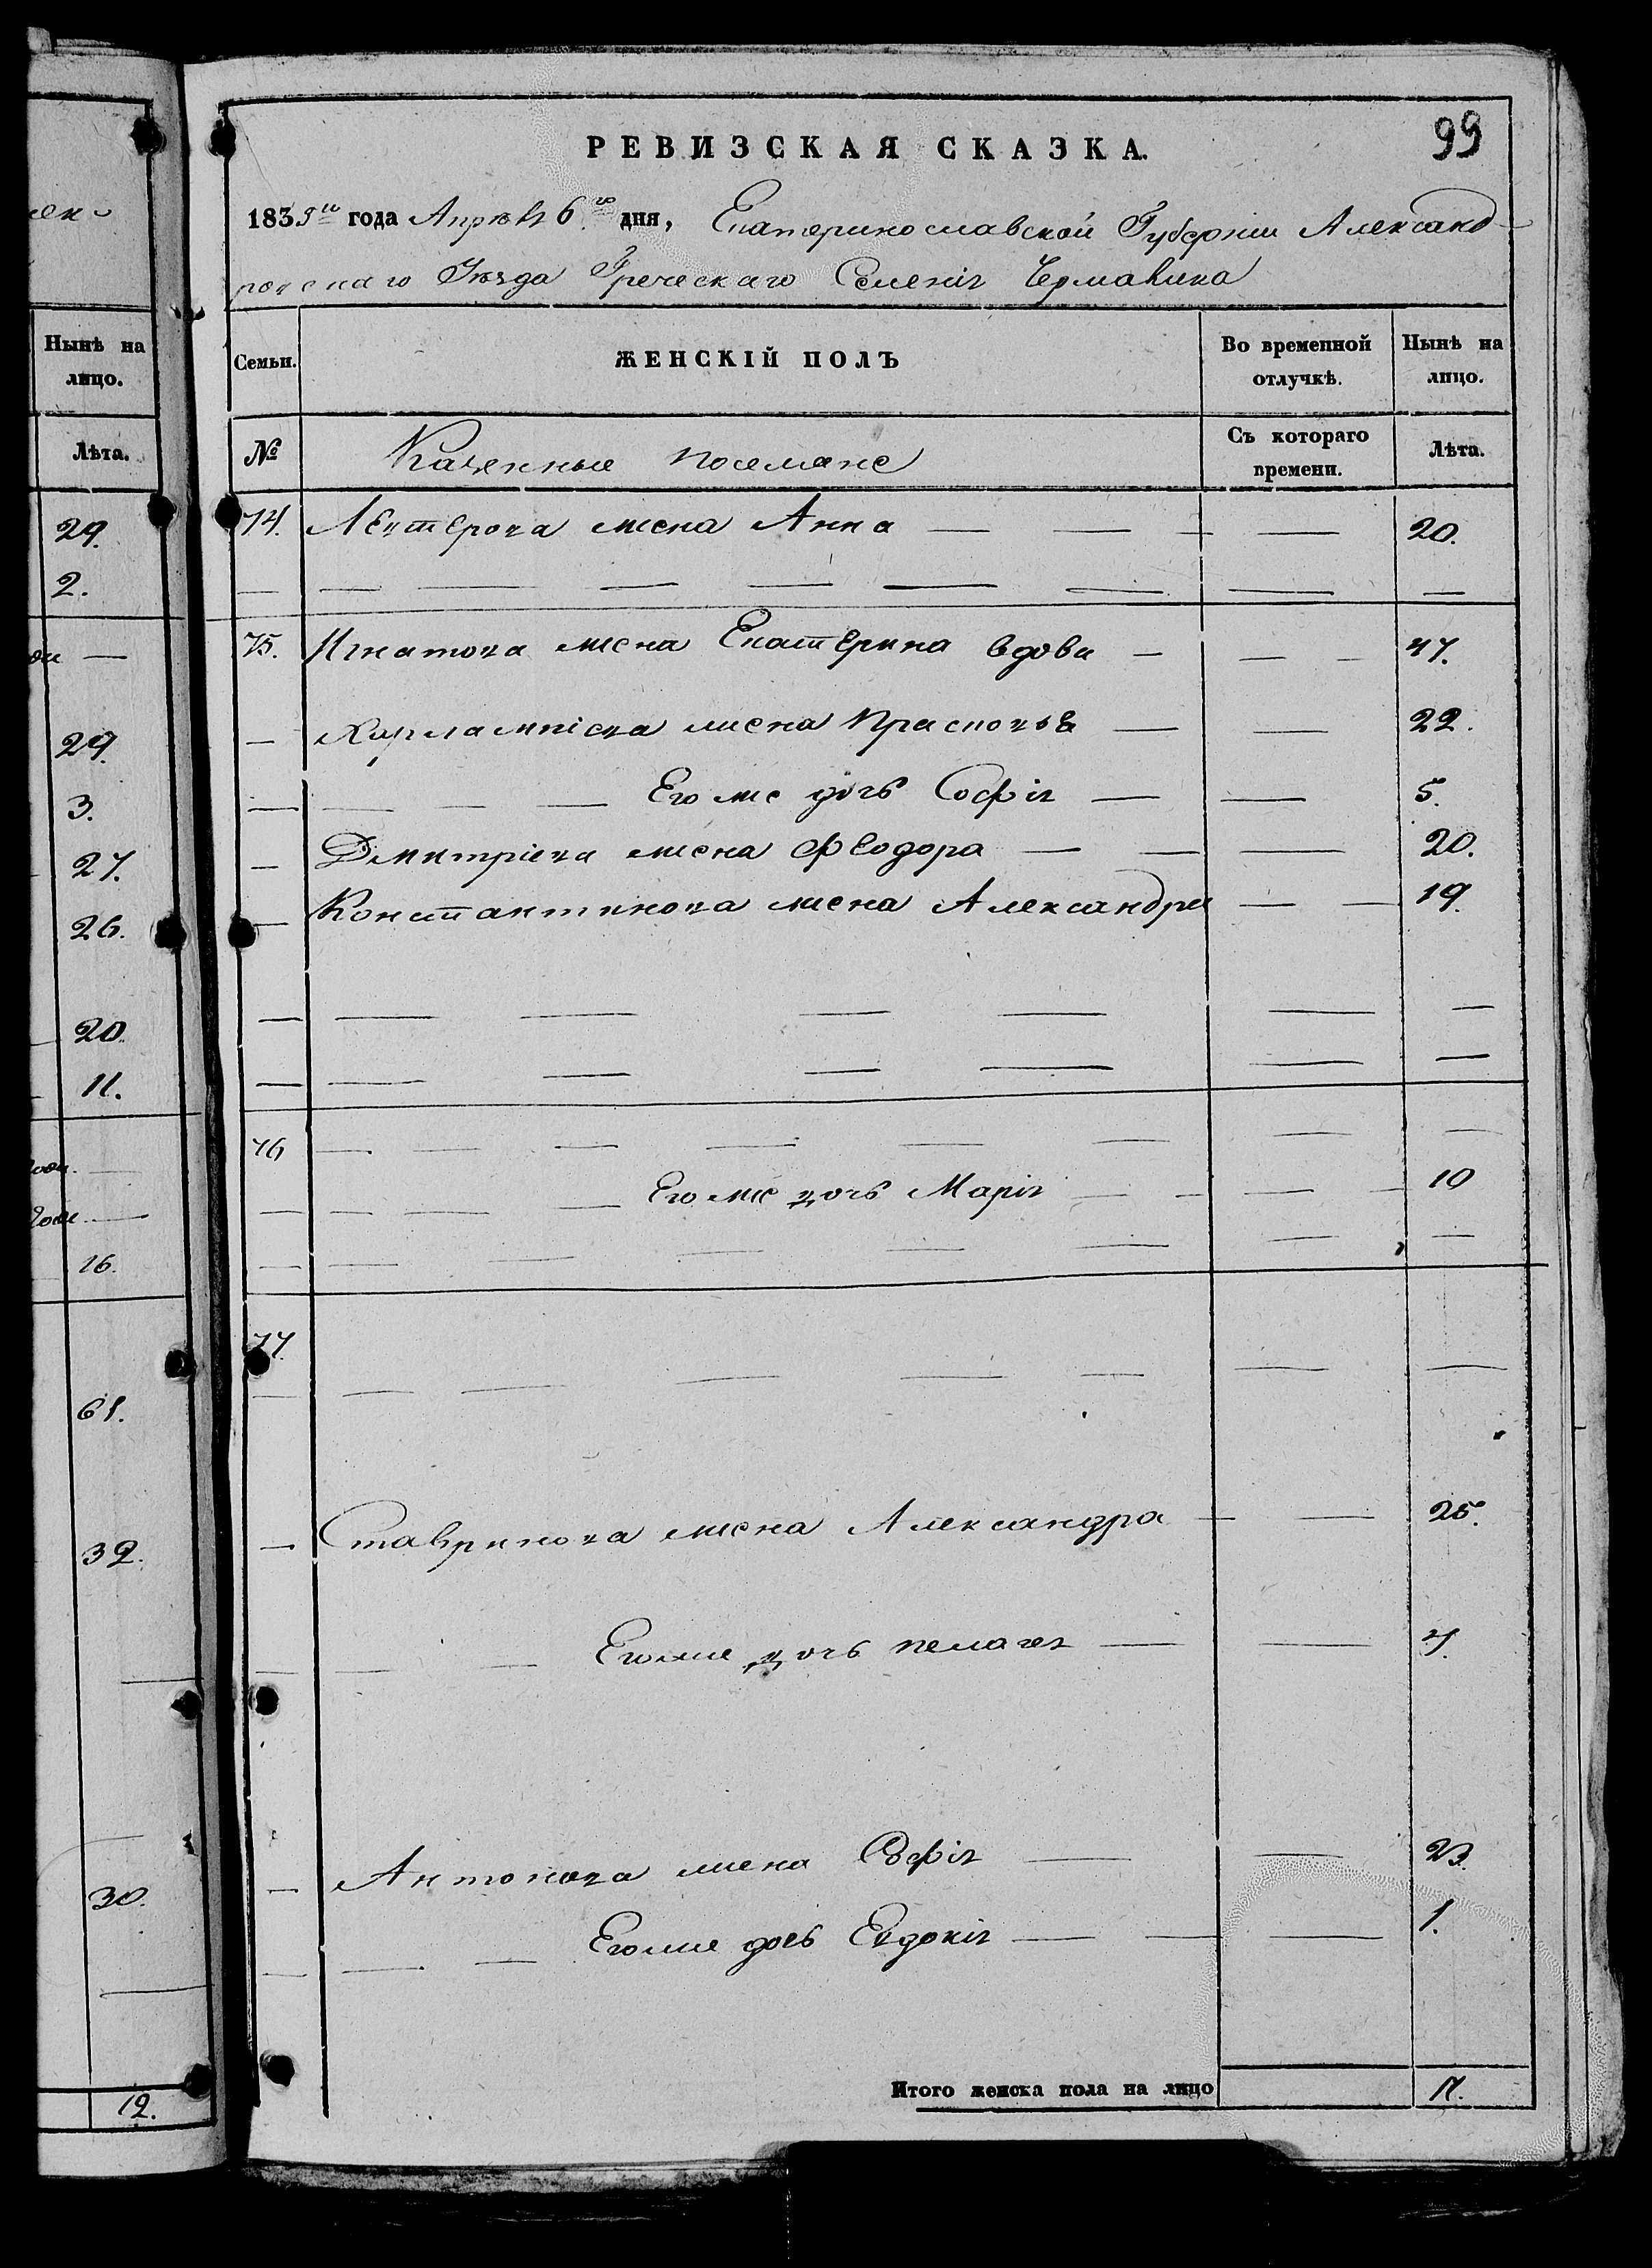 лек-
Нынѣ на
лицо.
Лѣта.
29.
2.
29.
3.
27.
26.
20.
11.
16.
61.
32.
30.
12.
99
РЕВИЗСКАЯ СКАЗКА.
1835го года Апрѣля 6го дня, Екатеринославской Губерніи Александ-
ровскаго Уѣзда Греческаго Селенія Чермалика
Семьи. ЖЕНСКІЙ ПОЛЪ Во временной отлучкѣ. Нынѣ на лицо.
№ Казенные поселяне Съ котораго времени. Лѣта.
74. Лефтерова жена Анна — — — — 20.
— — — — — — — — —
75. Игнатова жена Екатерина вдова — — — 47.
— Харлампіева жена Прасковья — — 22.
— — — — Его же дочь Софія — — 5.
— Дмитріева жена Феодора — — — 20.
— Константинова жена Александра — — 19.
— — — — — — —
— — — — — — —
76 — — — — — — — —
— — — — Его же дочь Марія — — — — 10
— — — — — — — — —
77.
— — — — — — — —
— Ставринова жена Александра — — 25.
— — — Его же дочь Пелагея — — 4.
— Антонова жена Софія — — 23.
— — — Его же дочь Евдокія — — — 1.
Итого женска пола на лицо 11.